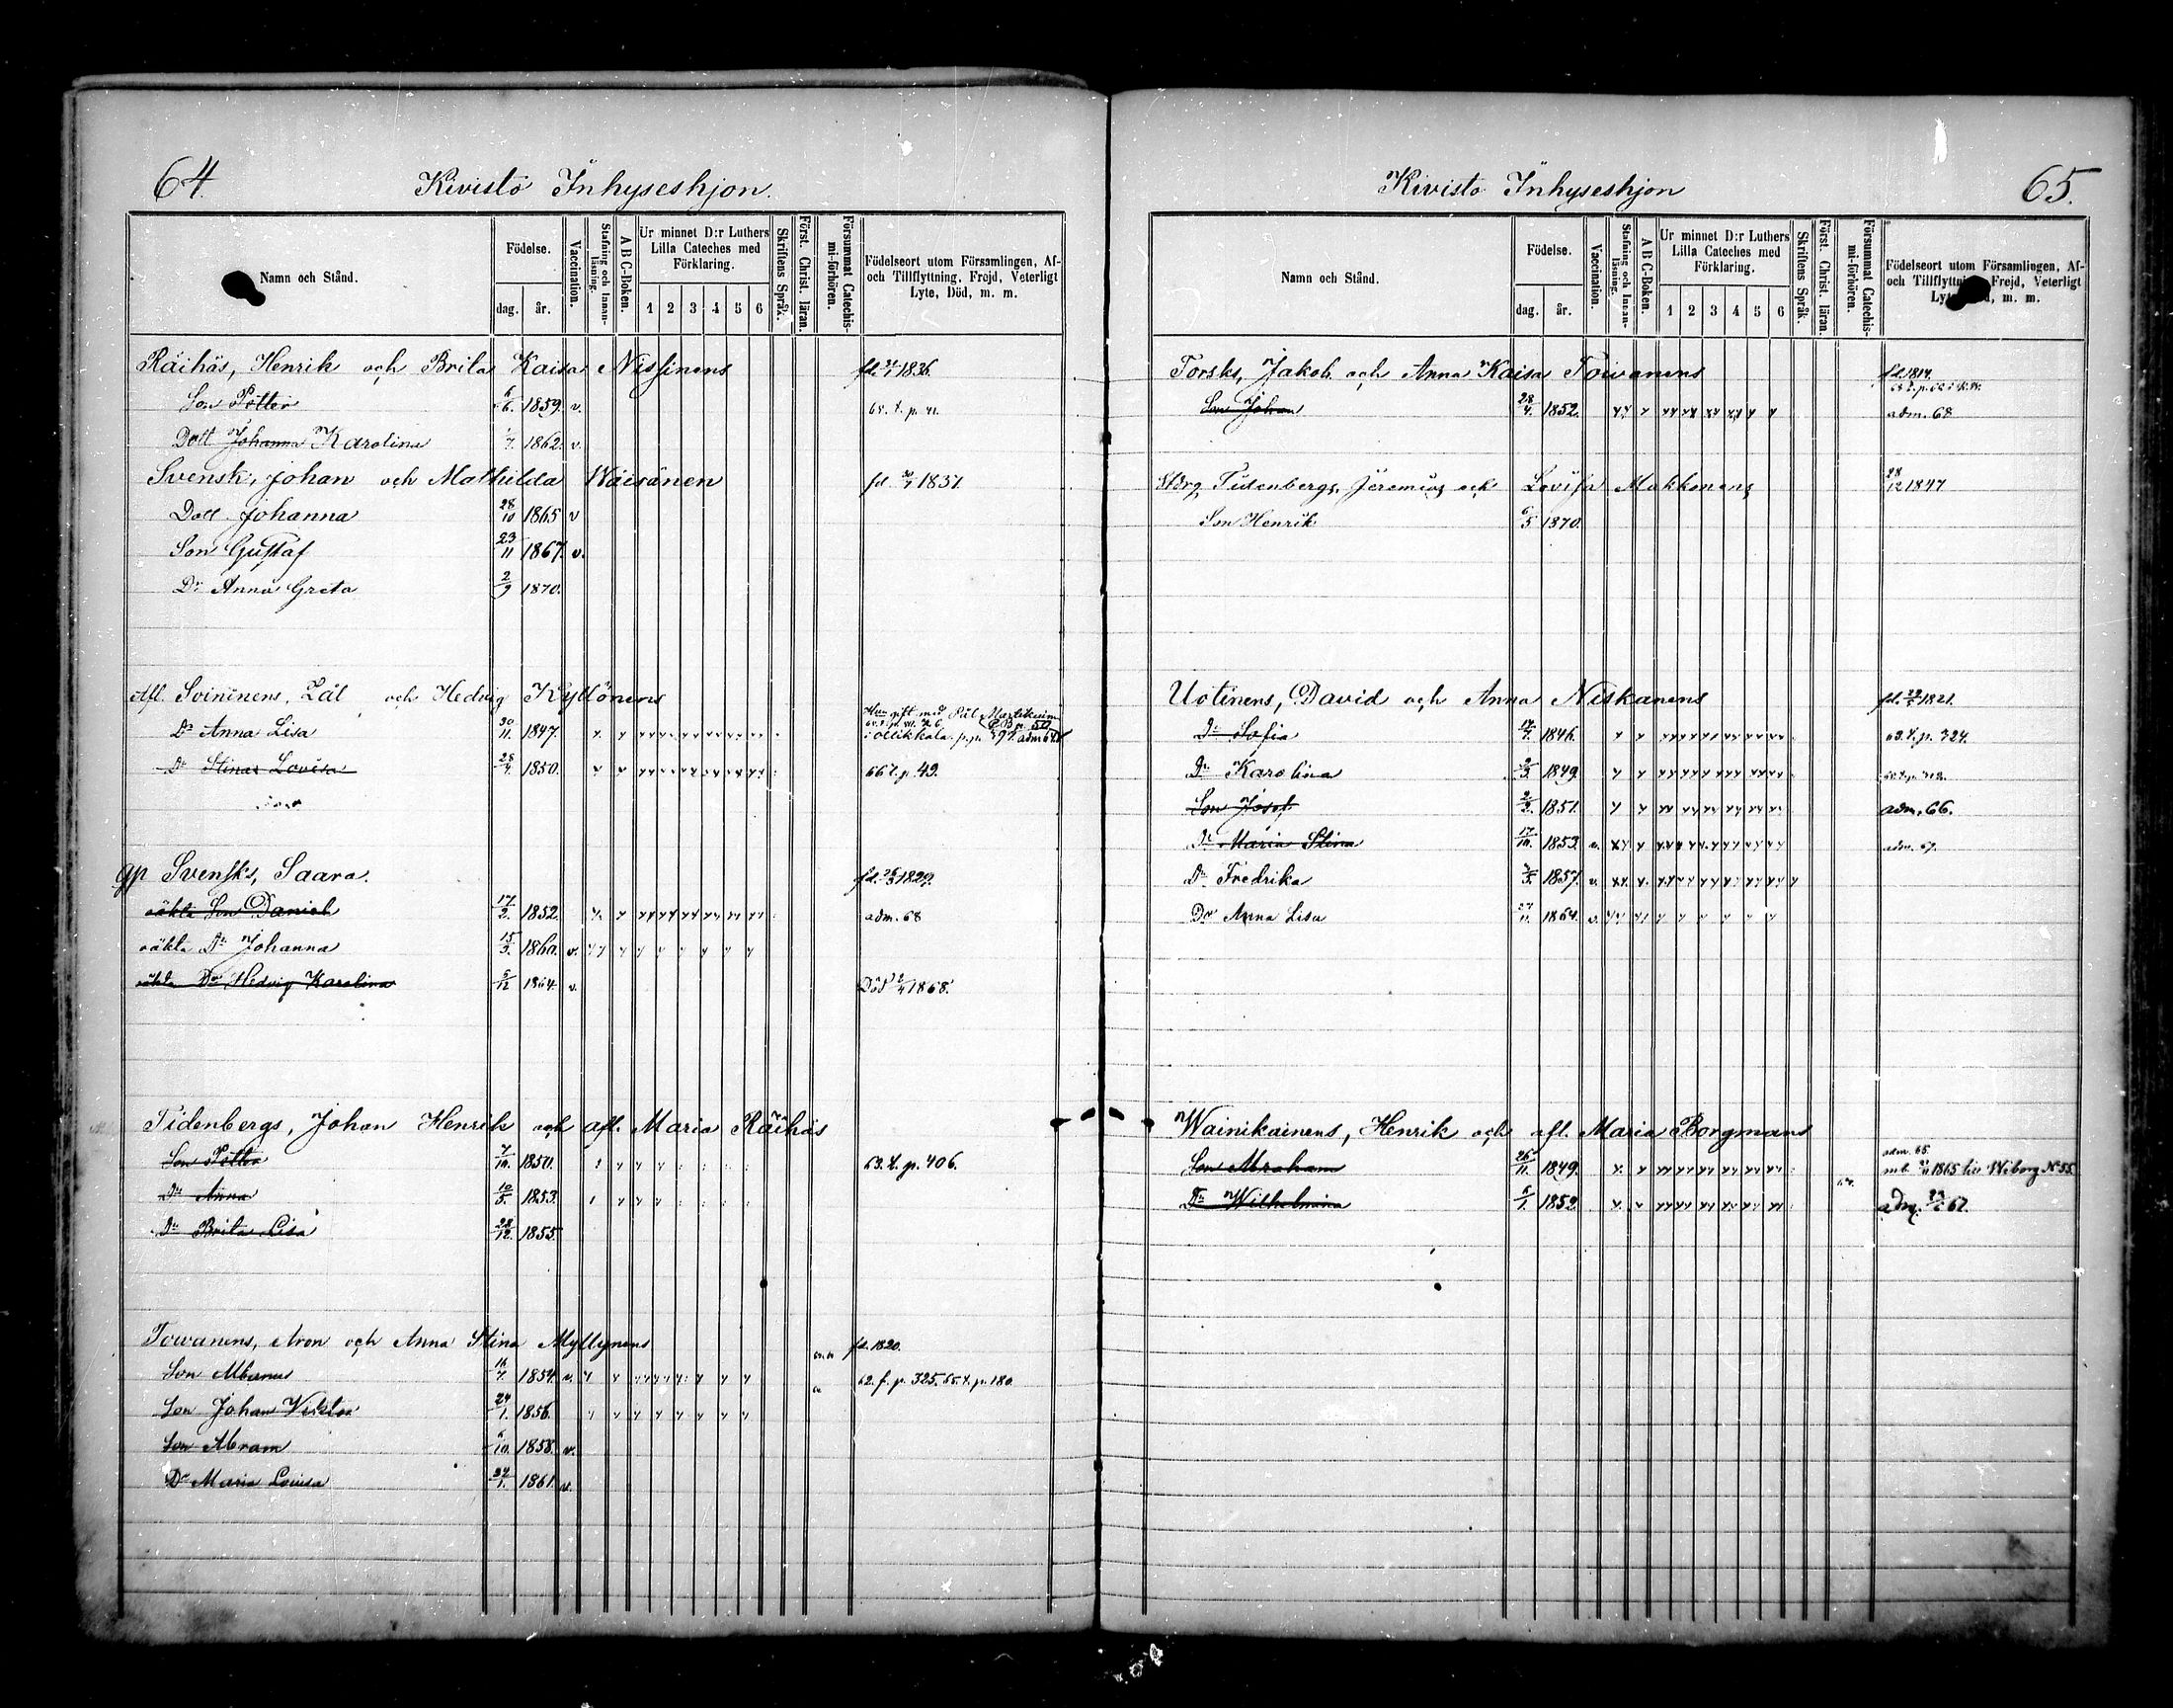 64.
Kivistö Inhyseshjon.
Namn och Stånd.
Födelse.
dag. år.
Vaccination.
Stafning och Innanläsning.
A B C-Boken.
Ur minnet D:r Luthers Lilla Cateches med Förklaring.
1 2 3 4 5 6
Skriftens Språk.
Först. Christ. läran.
Försummat Catechismi-förhören.
Födelseort utom Församlingen, Af- och Tillflyttning, Frejd, Veterligt Lyte, Död, m. m.
Räihäs, Henrik och Brita Kaisa Nissinens 1836.
Son Petter 6/6. 1859. v.
Dott Johanna Karolina 1862. v.
Svensk, Johan och Mathilda Wäisänen
Dott Johanna 28/10 1865 v
Son Gustaf 23/11 1867. v.
Dr Anna Greta 2/9 1870.
Afl. Soininens, och Hedvig Kyllönens
Dr Anna Lisa 30/11. 1847.
Dr Stina Lovisa 28/4. 1850. 66 f. p. 49.
gp Svensks, Saara. fd. 1829.
oäkta Son Daniel 17/2. 1852. adm. 68
oäkta Dr Johanna 15/3. 1860. v.
oäkta Dr Hedvig Karolina 5/12 1864. v. Död 1868.
Tidenbergs, Johan Henrik och afl. Maria Räihäs
Son Petter 7/10. 1850. 63. f. p. 406.
Dr Anna 10/3. 1853.
Dr Brita Lisa 28/12. 1855.
Towanens, Aron och Anna Stina Myllynens fd. 1820.
Son 16/7. 1854. v. 62. f. p. 325. 65. f. p. 180.
Son Johan Viktor 24/1. 1856.
Son Abram 6/10. 1858. v.
Dr Maria Lovisa 24/1. 1861. v.
Kivistö Inhyseshjon
65.
Namn och Stånd.
Födelse.
dag. år.
Vaccination.
Stafning och Innanläsning.
A B C-Boken.
Ur minnet D:r Luthers Lilla Cateches med Förklaring.
1 2 3 4 5 6
Skriftens Språk.
Först. Christ. läran.
Försummat Catechismi-förhören.
Födelseort utom Församlingen, Af- och Tillflyttning, Frejd, Veterligt m. m.
Torsks, Jakob och Anna Kaisa Towanens fd. 1814.
Son Johan 28/4. 1852. adm. 68
Tidenbergs, Jeremias och Lovisa Makkonens 28/12 1847
Son Henrik 1870.
Uotinens, David och Anna Niskanens 1821.
Dr Sofia 17/7. 1846. 63. f. p. 324.
Dr Karolina 2/3. 1849.
Son Josef 2/2. 1851. adm. 66.
Dr Maria Stina 17/10. 1853. v. adm. 69.
Dr Fredrika 1857. v.
Dr Anna Lisa 1864. v.
Wainikainens, Henrik och afl. Maria Borgmans
adm. 65.
Son Abraham 26/11. 1849. 1865 till Wiborg N 55.
Dr Wilhelmina 6/1. 1852 adm. 67.